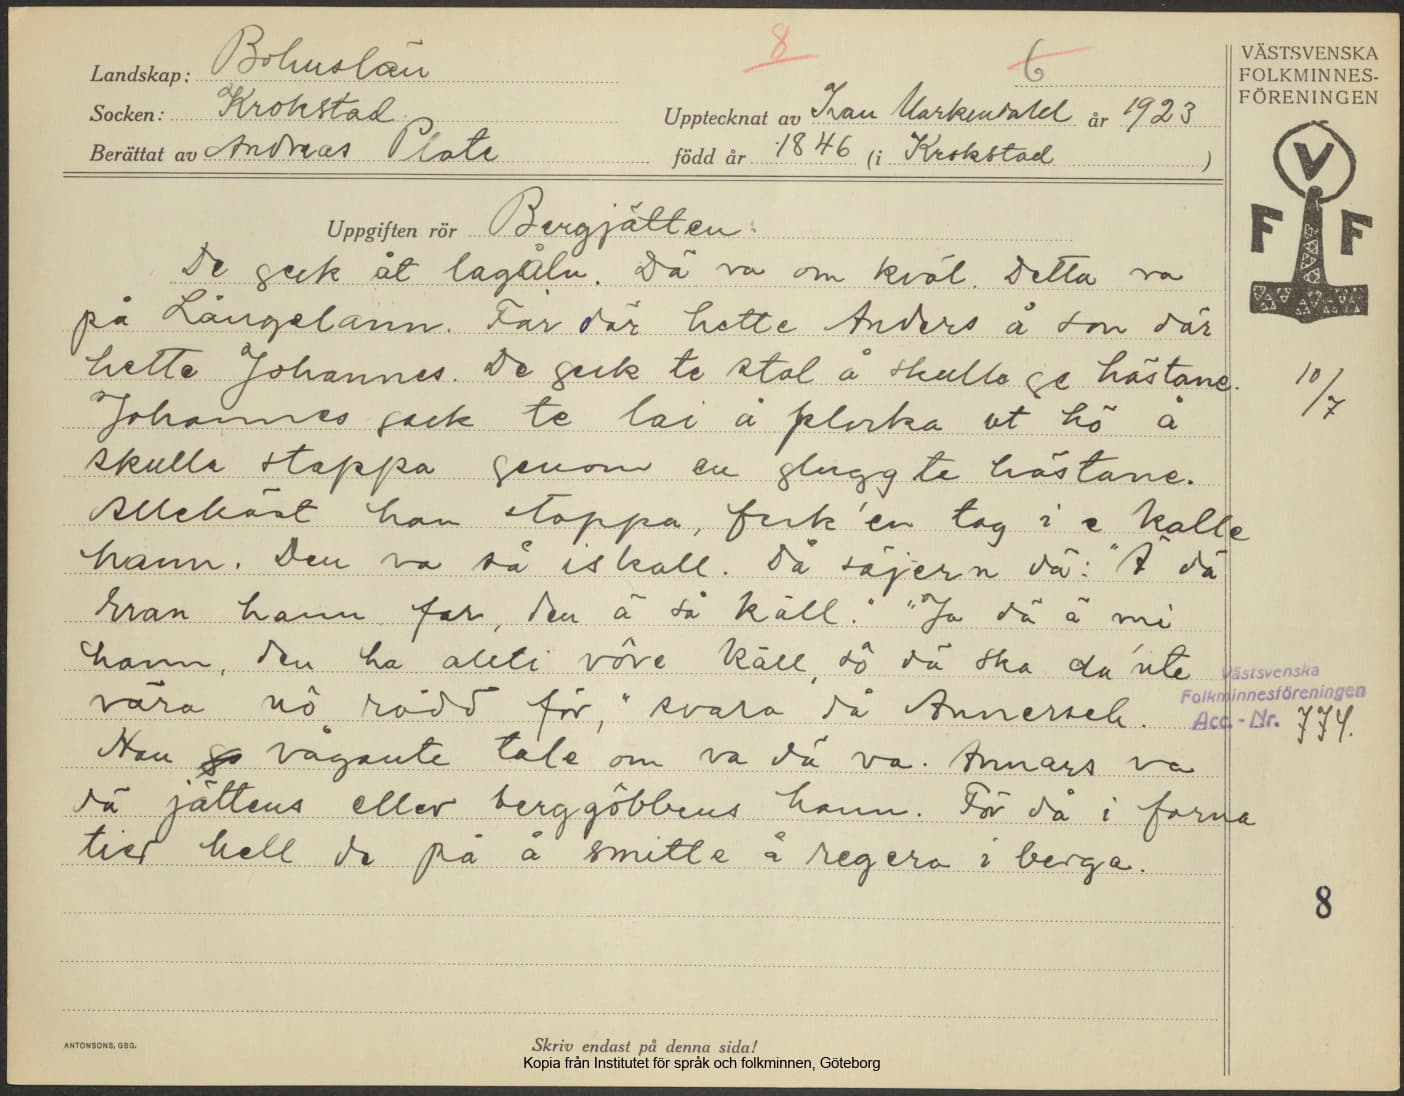 8
6
VÄSTSVENSKA
FOLKMINNES-
FÖRENINGEN
Landskap: Bohuslän
Socken: Krokstad
Upptecknat av Ivan Markendahl år 1923
Berättat av Andreas Plate
född år 1846 (i Krokstad)
V
F F
Uppgiften rör Bergjätten.
De geck åt lagåln. Dä va om kväl. Detta va
på Långelann. Far där hette Anders å son där
hette Johannes. De geck te stal å skulle ge hästane.
10/7
Johannes geck te lai å plocka ut hö å
skulle stoppa genom en glugg te hästane.
han stoppa, feck 'en tag i e kalle
hann. Den va så iskall. Då säjer'n dä: "Ä dä
Eran hann far, den ä så kåll." "Ja dä ä mi
hann, den ha allti vöre kåll, så dä ska du 'nte
vara nô rädd för," svara då Annersch.
Västsvenska
Folkminnesföreningen
Acc.-Nr. 774.
Han vågante tale om va dä va. Annars va
dä jättens eller berggöbbens hann. För då i forna
tier hell de på å smitte å regera i berga.
8
ANTONSONS, GBG.
Skriv endast på denna sida!
Kopia från Institutet för språk och folkminnen, Göteborg